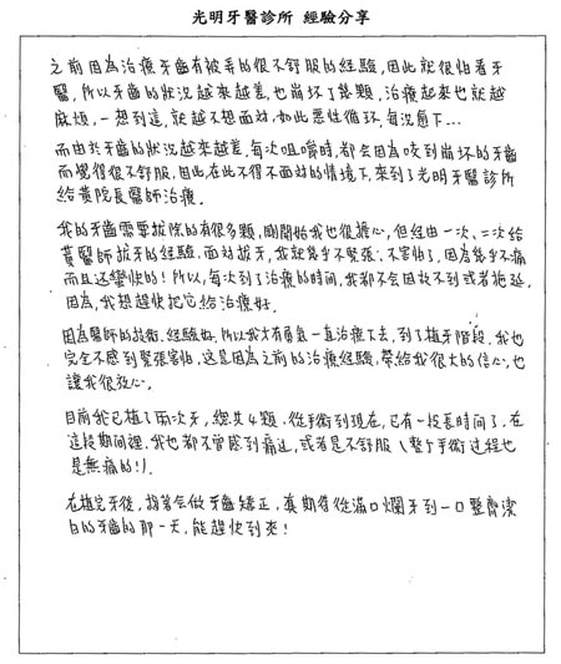 光明牙醫診所 經驗分享
之前因為治療牙齒有被弄的很不舒服的經驗，因此就很怕看牙
醫，所以牙齒的狀況越來越差，也崩壞了幾顆，治療起來也就越
麻煩，一想到這，就越不想面對，如此惡性循環，每況愈下…
而由於牙齒的狀況越來越差，每次咀嚼時，都會因為咬到崩壞的牙齒
而覺得很不舒服，因此在此不得不面對的情境下，來到了光明牙醫診所
給黃院長醫師治療。
我的牙齒需要拔除的有很多顆，剛開始我也很擔心，但經由一次、二次給
黃醫師拔牙的經驗，面對拔牙，我就幾乎不緊張、不害怕了，因為幾乎不痛
而且还蠻快的！所以，每次到了治療的時間，我都不会因故不到或者拖延，
因為，我想趕快把它給治療好。
因為醫師的技術、經驗好，所以我才有勇氣一直治療下去，到了植牙階段，我也
完全不感到緊張害怕，这是因為之前的治療經驗，帶給我很大的信心，也
讓我很放心。
目前我已植了兩次牙，總共4顆，從手術到現在，已有一段長時間了，在
這段期間裡，我也都不曾感到痛过，或者是不舒服（整个手術过程也
是無痛的！）。
在植完牙後，接著会做牙齒矯正，真期待從滿口爛牙到一口整齊潔
白的牙齒的那一天，能趕快到來！